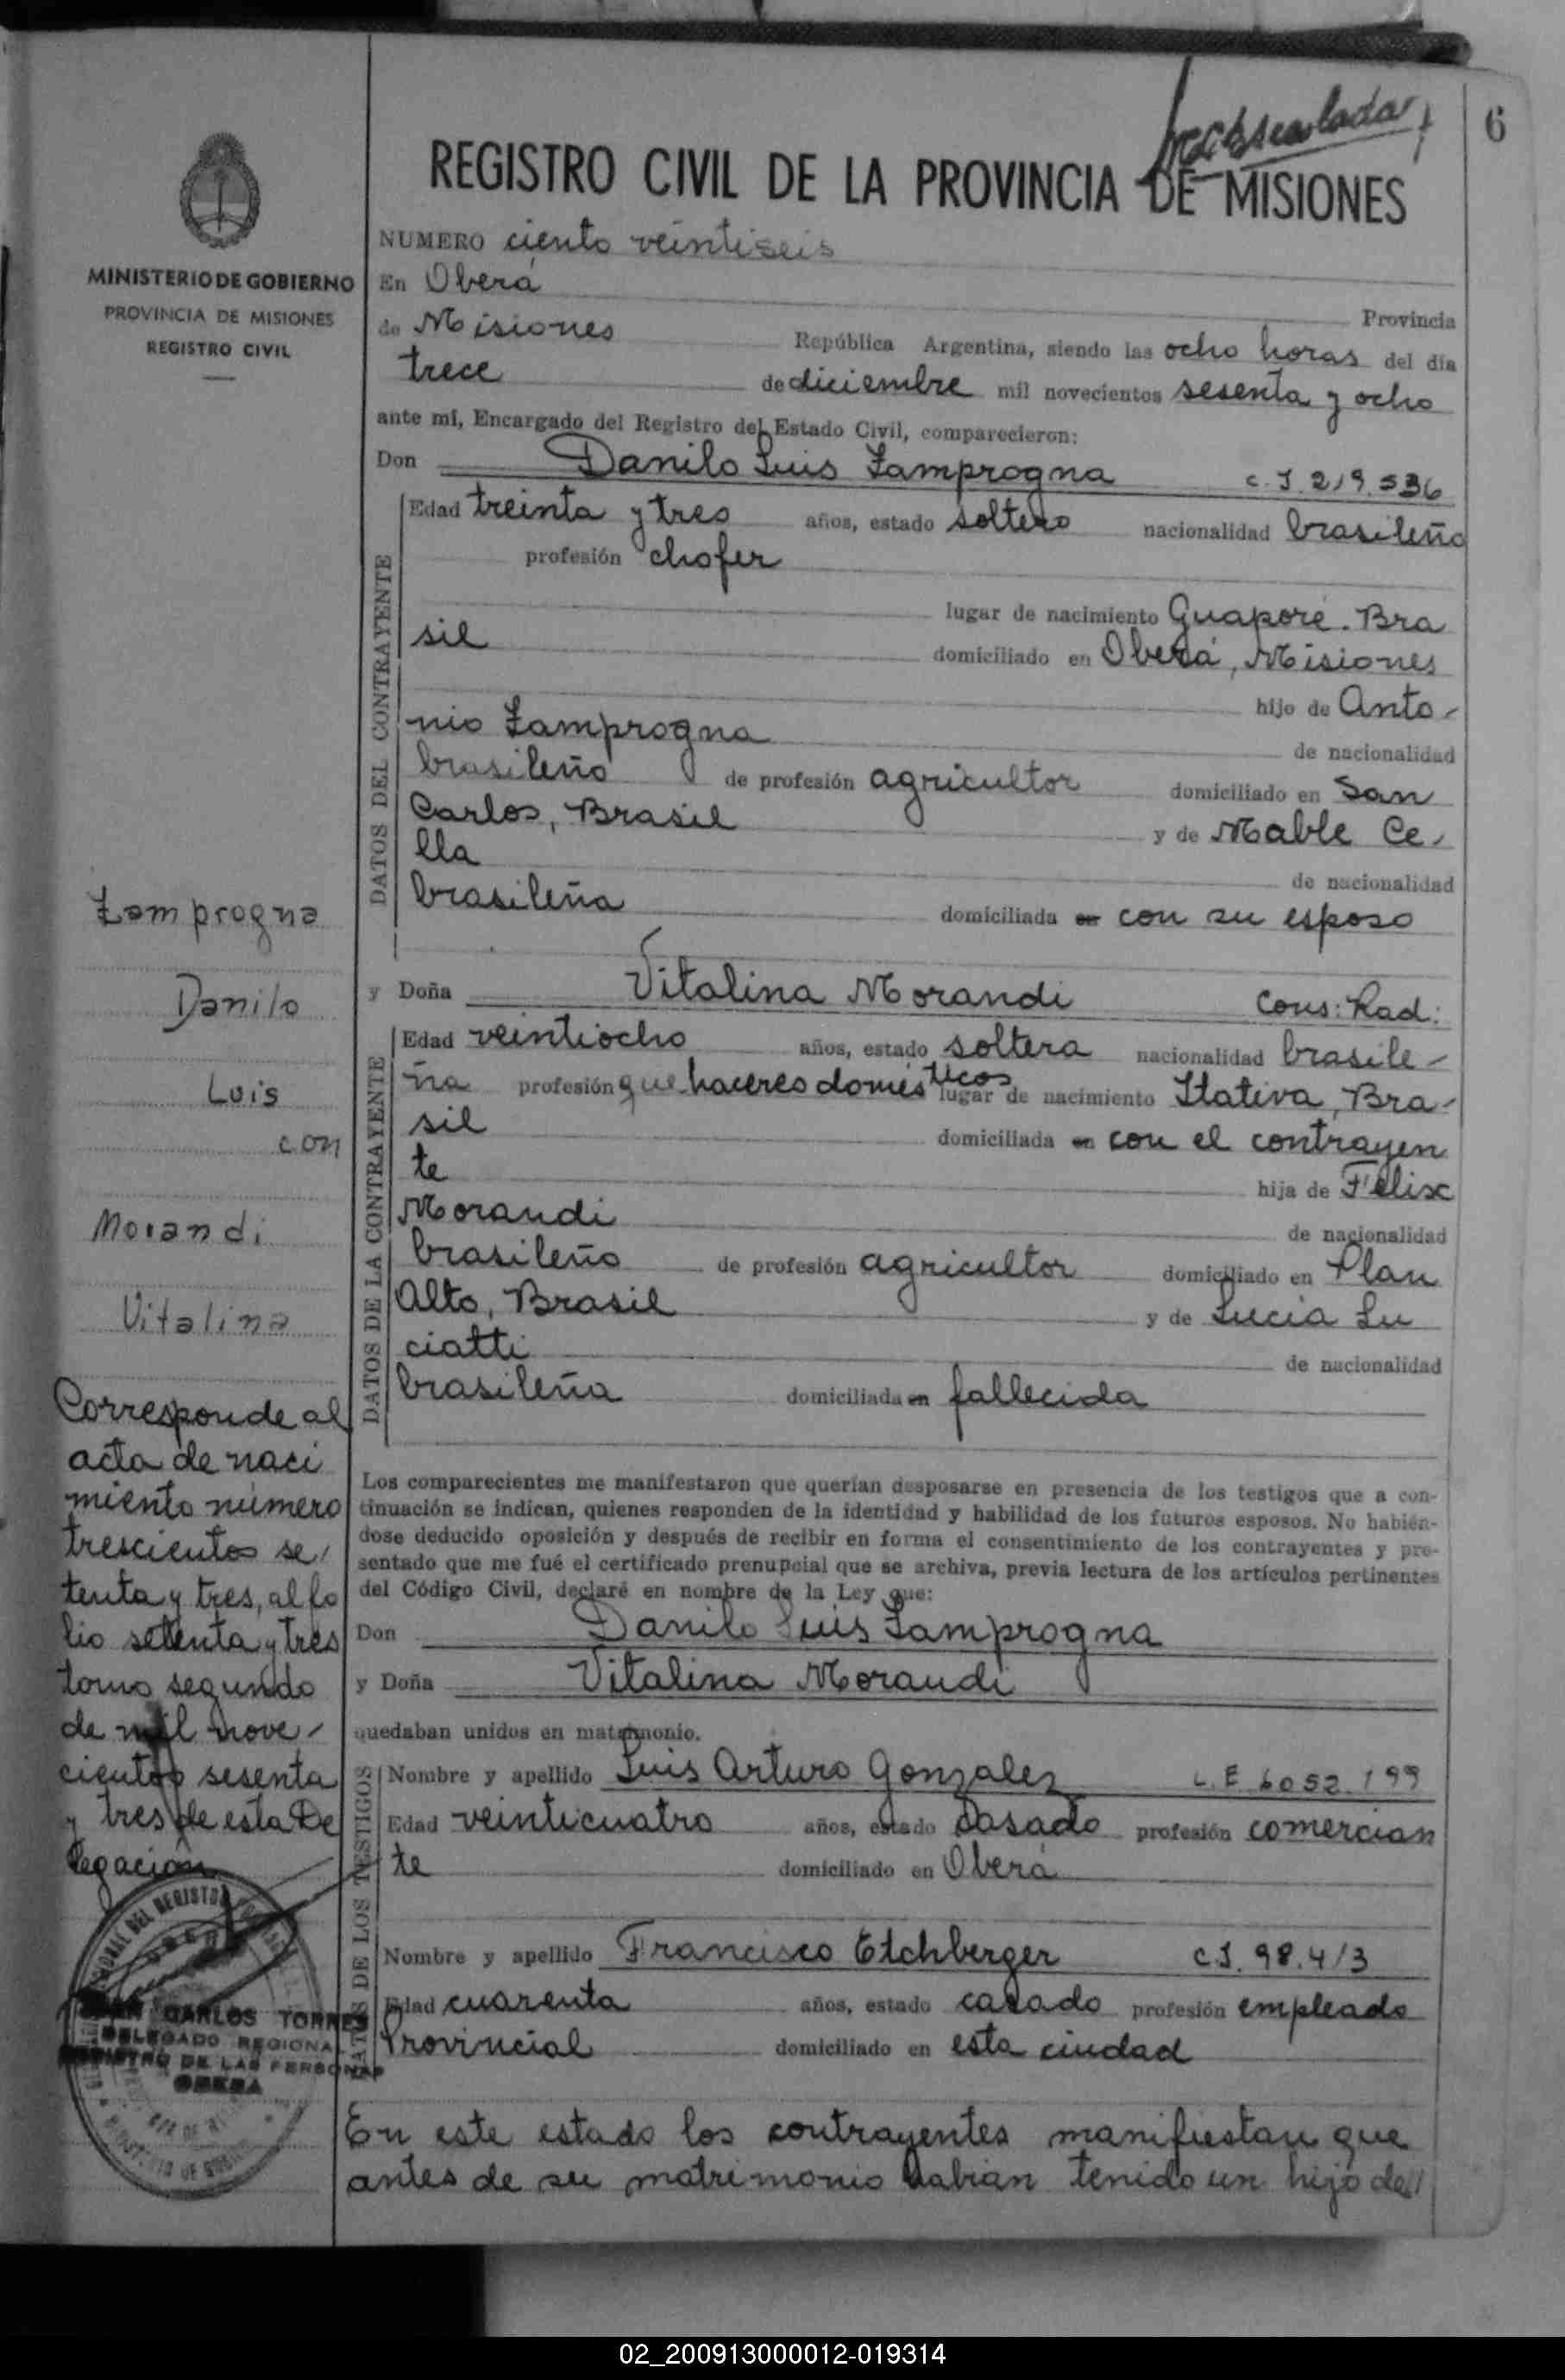 6
REGISTRO CIVIL DE LA PROVINCIA DE MISIONES
MINISTERIO DE GOBIERNO
PROVINCIA DE MISIONES
REGISTRO CIVIL
NUMERO ciento veintiseis
En Oberá
Provincia
de Misiones República Argentina, siendo las ocho horas del día
trece de diciembre mil novecientos sesenta y ocho
ante mí, Encargado del Registro del Estado Civil, comparecieron:
Don Danilo Luis Zamprogna C.I. 219.536
DATOS DEL CONTRAYENTE
Edad treinta y tres años, estado soltero nacionalidad brasileño
profesión chofer
lugar de nacimiento Guaporé. Bra
sil domiciliado en Oberá, Misiones
hijo de Anto-
nio Zamprogna de nacionalidad
brasileño de profesión agricultor domiciliado en San
Carlos, Brasil y de Mable Ce-
lla de nacionalidad
brasileña domiciliada en con su esposo
y Doña Vitalina Morandi Cons: Rad:
DATOS DE LA CONTRAYENTE
Edad veintiocho años, estado soltera nacionalidad brasile-
ña profesión que haceres domésticos lugar de nacimiento Itativa, Bra-
sil domiciliada en con el contrayen
te hija de Félix
Morandi de nacionalidad
brasileño de profesión agricultor domiciliado en Plan
Alto, Brasil y de Lucia Lu
ciatti de nacionalidad
brasileña domiciliada en fallecida
Los comparecientes me manifestaron que querían desposarse en presencia de los testigos que a con-
tinuación se indican, quienes responden de la identidad y habilidad de los futuros esposos. No habién-
dose deducido oposición y después de recibir en forma el consentimiento de los contrayentes y pre-
sentado que me fué el certificado prenupcial que se archiva, previa lectura de los artículos pertinentes
del Código Civil, declaré en nombre de la Ley que:
Don Danilo Luis Zamprogna
y Doña Vitalina Morandi
quedaban unidos en matrimonio.
DATOS DE LOS TESTIGOS
Nombre y apellido Luis Arturo Gonzalez L.E 6052.199
Edad veinticuatro años, estado casado profesión comercian
te domiciliado en Oberá
Nombre y apellido Francisco Etchberger C.I. 98.413
Edad cuarenta años, estado casado profesión empleado
Provincial domiciliado en esta ciudad
En este estado los contrayentes manifiestan que
antes de su matrimonio habían tenido un hijo de
Zamprogna
Danilo
Luis
con
Morandi
Vitalina
Corresponde al
acta de naci
miento número
trescientos se/
tenta y tres, al fo
lio setenta y tres
tomo segundo
de mil nove-
cientos sesenta
y tres de esta De
legación
CARLOS TORRES
DELEGADO REGIONAL
REGISTRO DE LAS PERSONAS
OBERA
02_200913000012-019314